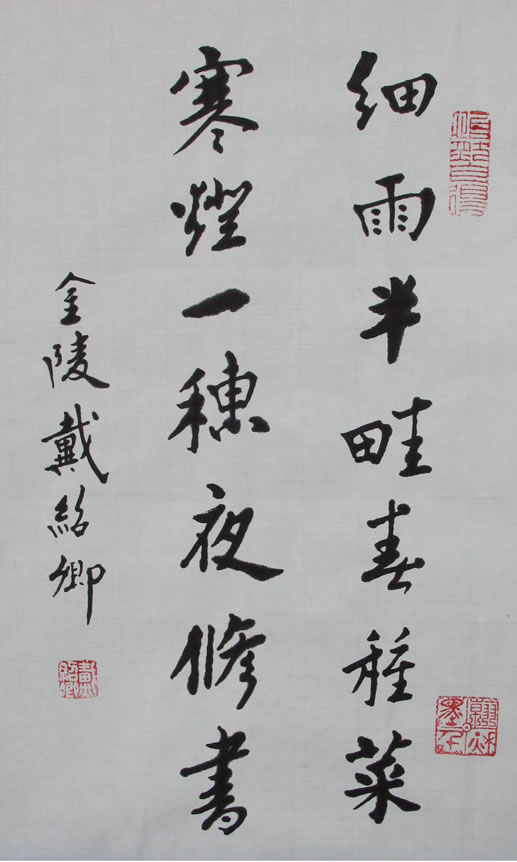 細雨半畦春種菜
寒燈一穗夜修書
金陵戴紹卿
戴紹卿